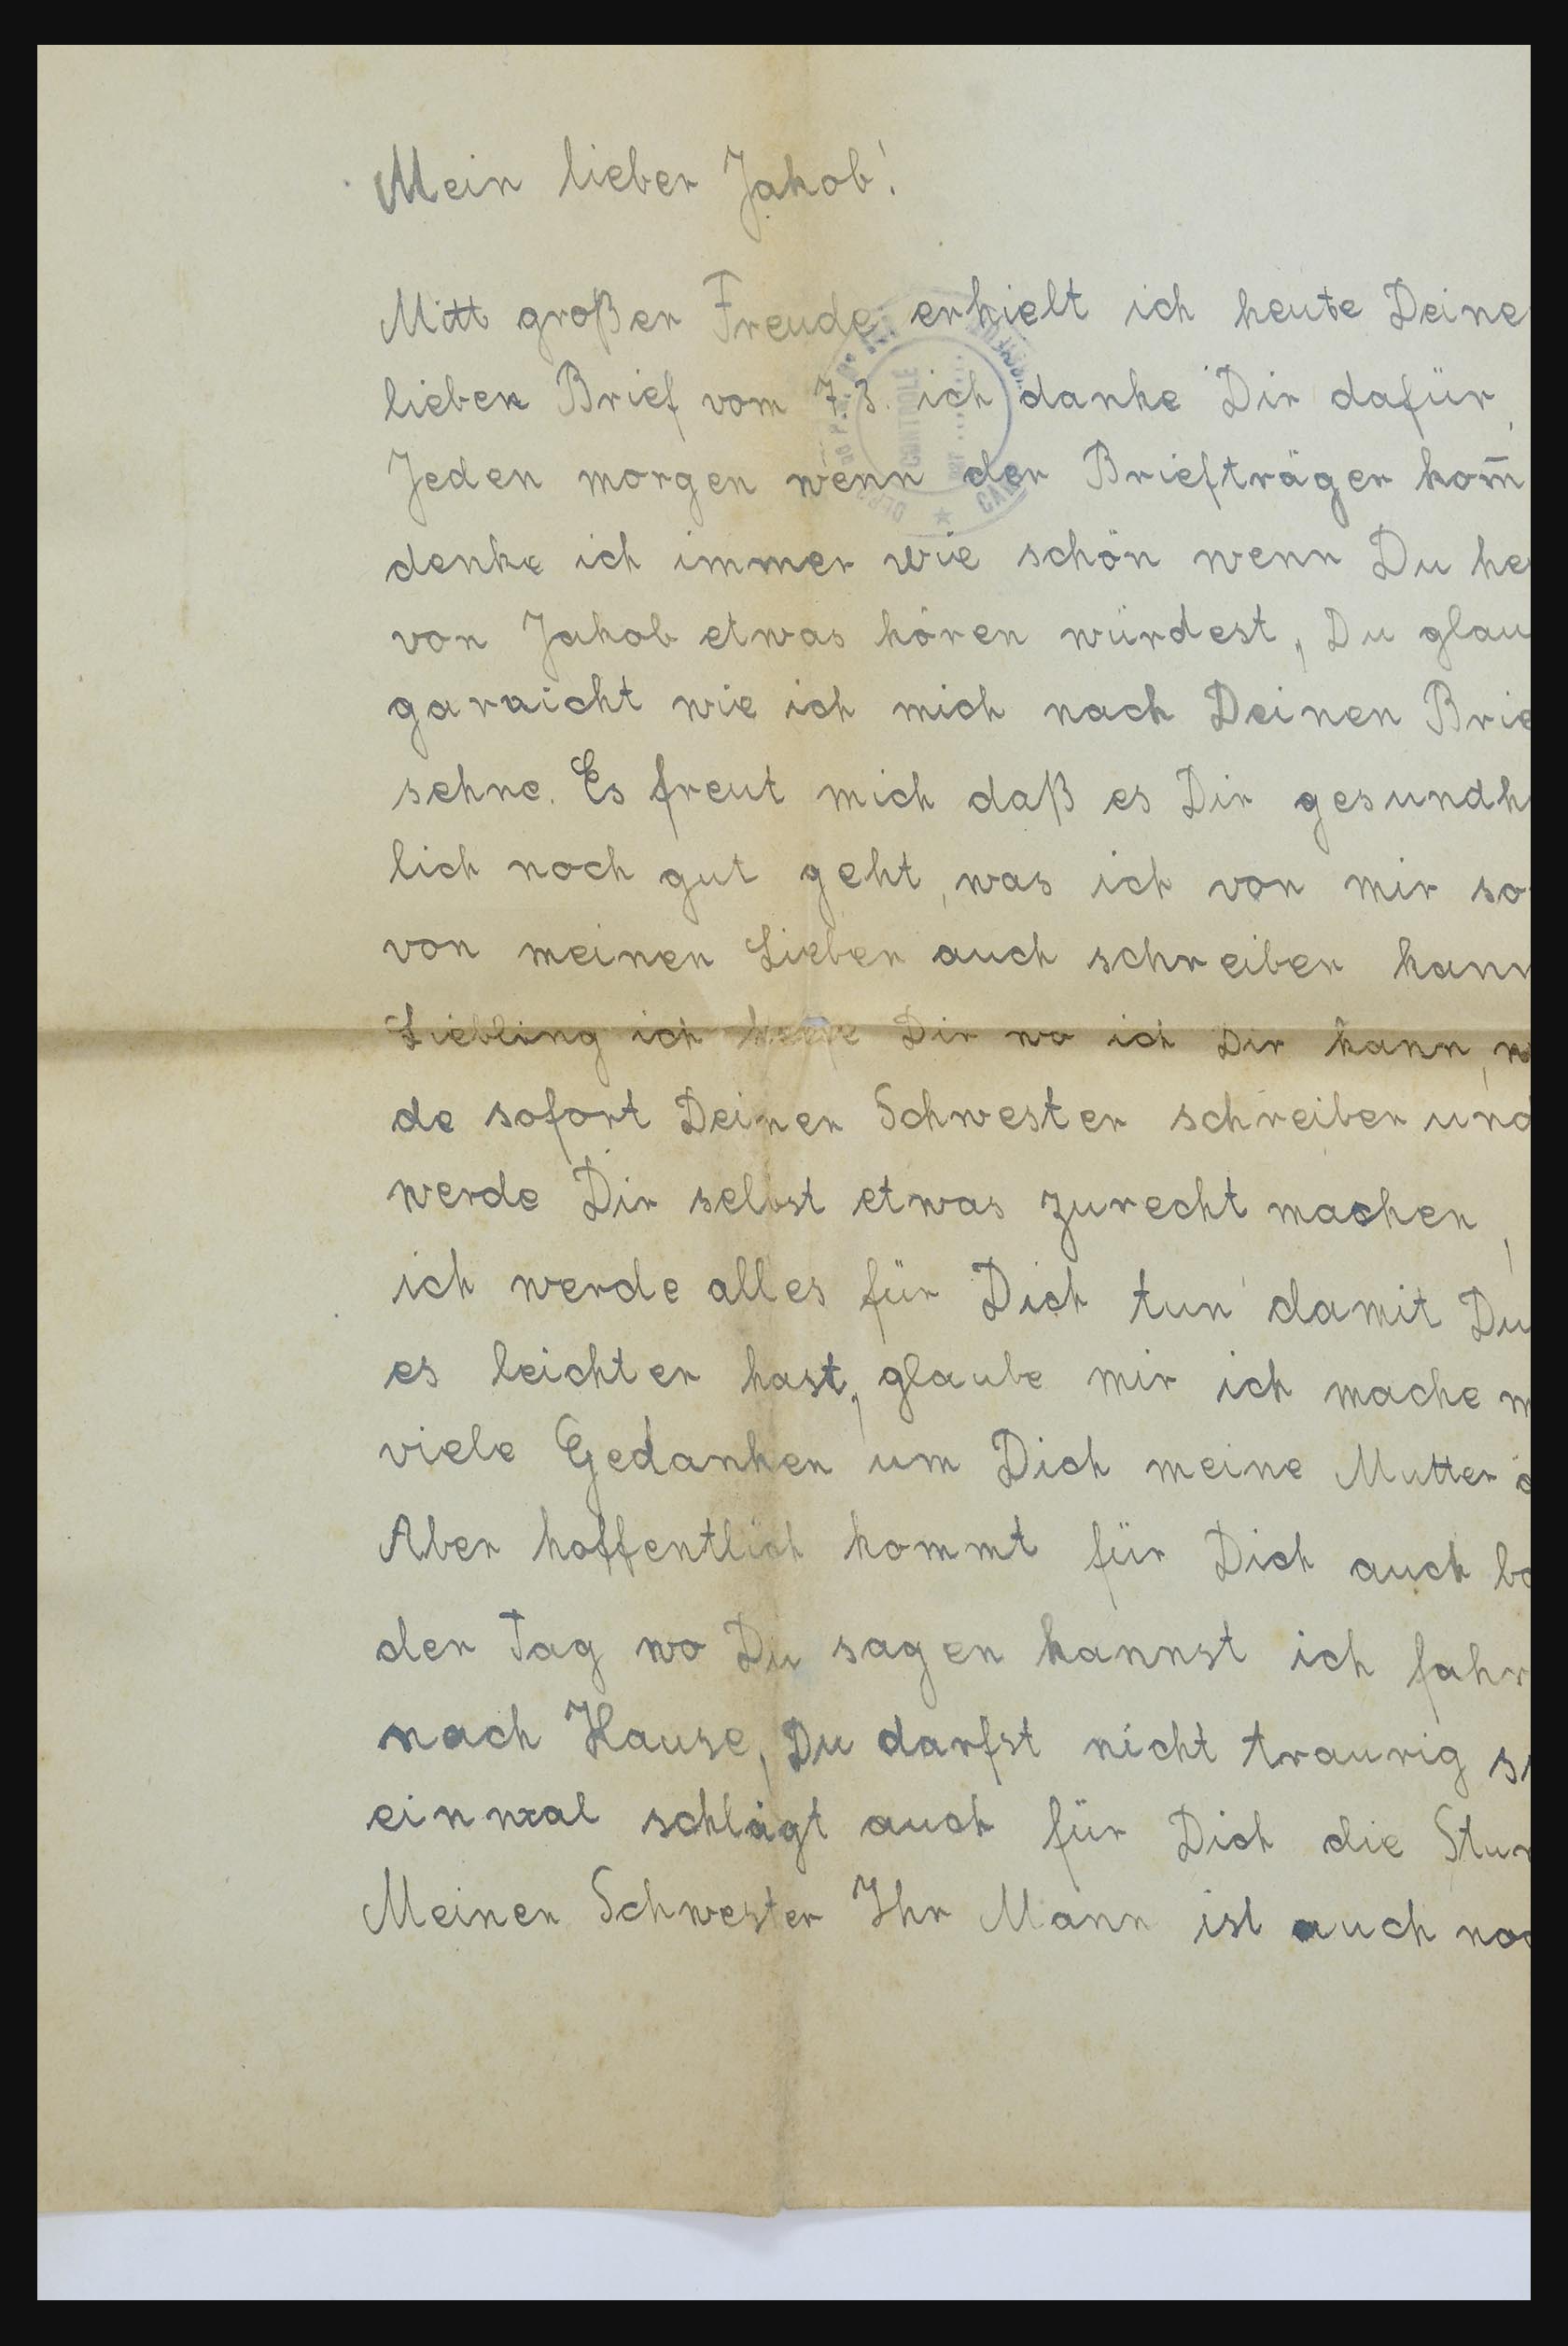 Mein lieber Jakob!
Mitt großer Freude erhielt ich heute Deine
lieben Brief vom 7.3. ich danke Dir dafür,
Jeden morgen wenn der Briefträger kom̅
denke ich immer wie schön wenn Du he
von Jakob etwas hören würdest, Du glau
garnicht wie ich mich nach Deinen Brie
sehne. Es freut mich daß es Dir gesundh
lich noch gut geht, was ich von mir so
von meinen Lieben auch schreiben kann
Liebling ich helfe Dir wo ich Dir kann, w
de sofort Deiner Schwester schreiben und
werde Dir selbst etwas zurecht machen,
ich werde alles für Dich tun damit Du
es leichter hast, glaube mir ich mache m
viele Gedanken um Dich meine Mutter
Aber hoffentlich kommt für Dich auch ba
der Tag wo Du sagen kannst ich fahr
nach Hause, Du darfst nicht traurig s
einmal schlägt auch für Dich die Stun
Meiner Schwester Ihr Mann ist auch noc
CONTROLE